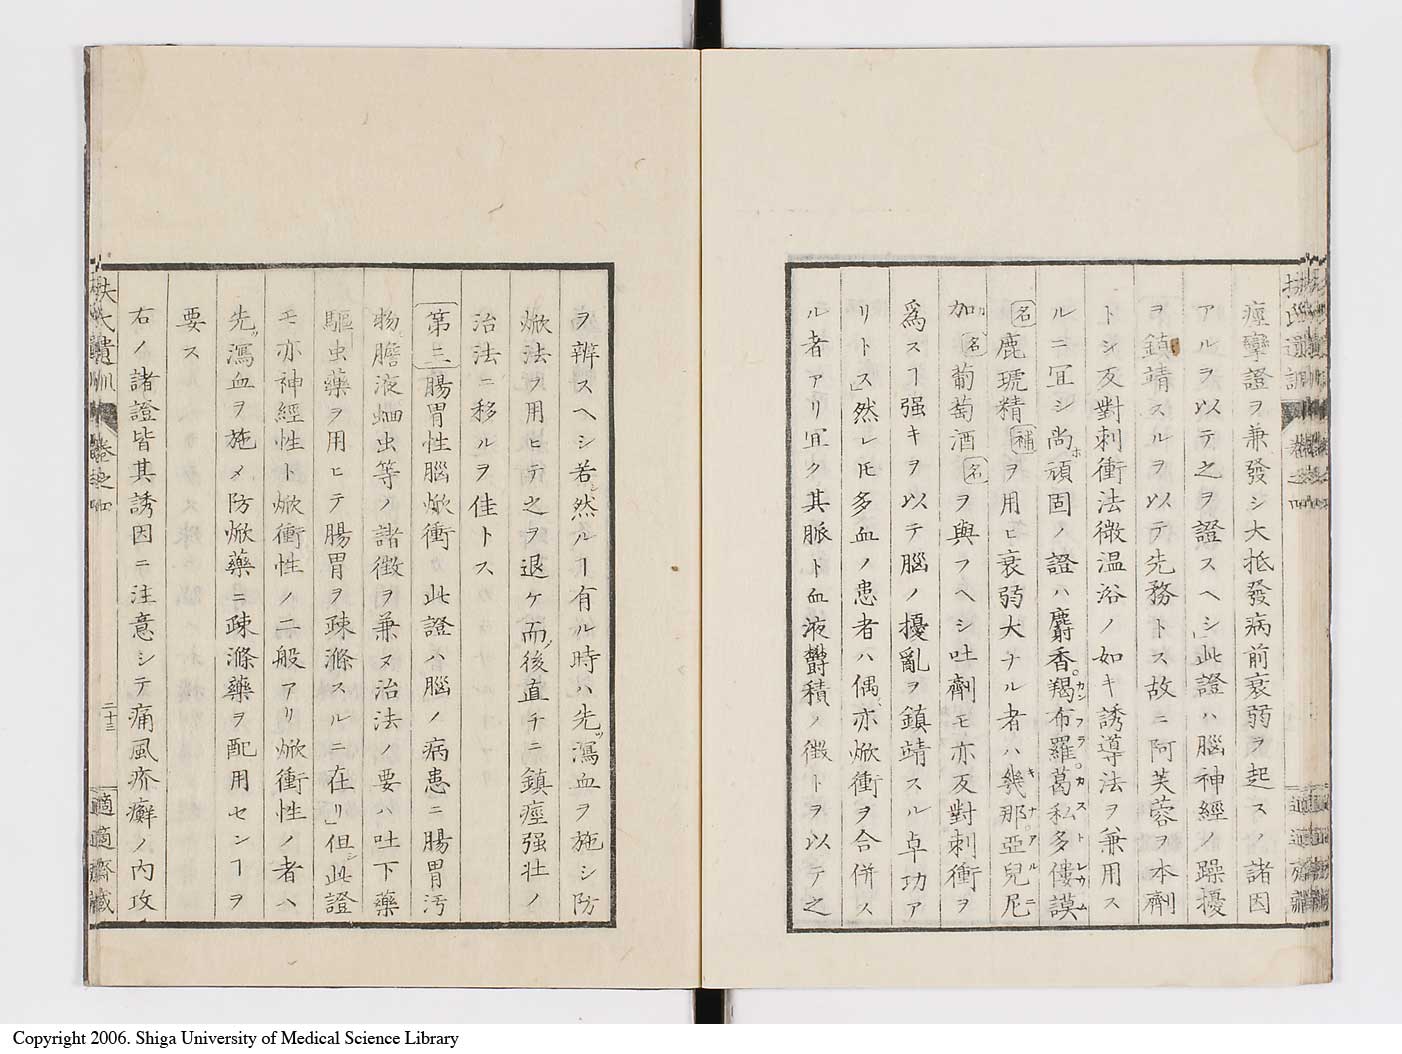 痙攣證ヲ兼發シ大抵發病前衰弱ヲ起スノ諸因
アルヲ以テ之ヲ證スヘシ」此證ハ腦神經ノ躁擾
ヲ鎮靖スルヲ以テ先務トス故ニ阿芙蓉ヲ本劑
トシ反對刺衝法微温浴ノ如キ誘導法ヲ兼用ス
ルニ冝シ尚ホ頑固ノ證ハ麝香。羯布羅。葛私多僂謨
名鹿琥精補ヲ用ヒ衰弱大ナル者ハ幾那。亞兒尼
加名葡萄酒名ヲ與フヘシ吐劑モ亦反對刺衝ヲ
爲スヿ強キヲ以テ腦ノ擾亂ヲ鎮靖スル卓功ア
リトス」然レ𪜈多血ノ患者ハ偶亦焮衝ヲ合併ス
ル者アリ冝ク其脈ト血液欝積ノ徴トヲ以テ之
ヲ辨スヘシ若シ然ルヿ有ル時ハ先ツ瀉血ヲ施シ防
焮法ヲ用ヒテ之ヲ退ケ而後直チニ鎮痙强壮ノ
治法ニ移ルヲ佳トス
第三腸胃性腦焮衝 此證ハ腦ノ病患ニ腸胃汚
物膽液蛔虫等ノ諸徴ヲ兼ヌ治法ノ要ハ吐下藥
驅虫藥ヲ用ヒテ腸胃ヲ疎滌スルニ在リ」但シ此證
モ亦神經性ト焮衝性ノ二般アリ焮衝性ノ者ハ
先ツ瀉血ヲ施メ防焮藥ニ疎滌藥ヲ配用センヿヲ
要ス
右ノ諸證皆其誘因ニ注意シテ痛風疥癬ノ内攻
扶氏遺訓 卷之四 二十三 適適齋藏